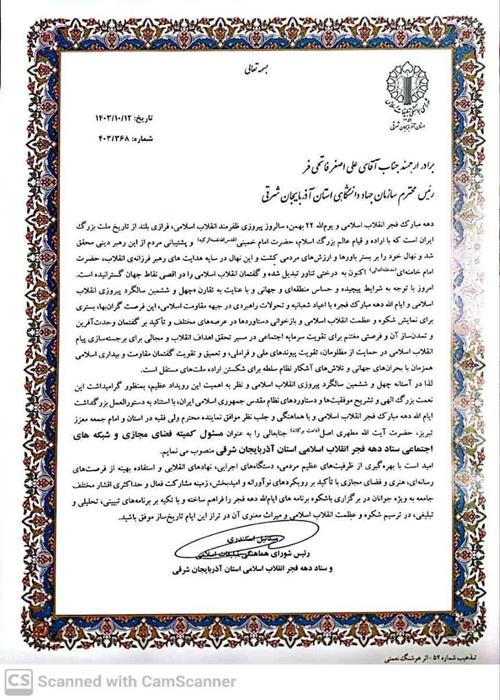 بسمه تعالی
شورای هماهنگی تبلیغات اسلامی
استان آذربایجان شرقی
تاریخ: ۱۴۰۳/۱۰/۱۲
شماره: ۴۰۳/۳۶۸
برادر ارجمند جناب آقای علی اصغر فاتحی فر
رئیس محترم سازمان جهاد دانشگاهی استان آذربایجان شرقی
دهه مبارک فجر انقلاب اسلامی و یوم‌الله ۲۲ بهمن، سالروز پیروزی ظفرمند انقلاب اسلامی، فرازی بلند از تاریخ ملت بزرگ
ایران است که با اراده و قیام عالم بزرگ اسلام، حضرت امام خمینی و پشتیبانی مردم از این رهبر دینی محقق
شد و نهال خود را بر بستر باورها و ارزش‌های مردمی کشت و این نهال در سایه هدایت های رهبر فرزانه‌ی انقلاب، حضرت
امام خامنه‌ای اکنون به درختی تناور تبدیل شده و گفتمان انقلاب اسلامی را در اقصی نقاط جهان گسترانیده است.
امروز با توجه به شرایط پیچیده و حساس منطقه‌ای و جهانی و با عنایت به تقارن چهل و ششمین سالگرد پیروزی انقلاب
اسلامی و ایام الله دهه مبارکه فجر با اعیاد شعبانیه و تحولات راهبردی در جبهه مقاومت اسلامی، این فرصت گران‌بها، بستری
برای نمایش شکوه و عظمت انقلاب اسلامی و بازخوانی دستاوردها در عرصه‌های مختلف و تأکید بر گفتمان وحدت‌آفرین
و تمدن‌ساز آن و فرصتی مغتنم برای تقویت سرمایه اجتماعی در مسیر تحقق اهداف انقلاب و مجالی برای برجسته‌سازی پیام
انقلاب اسلامی در حمایت از مظلومان، تقویت پیوندهای ملی و فراملی، و تعمیق و تقویت گفتمان مقاومت و بیداری اسلامی
همزمان با بحران‌های جهانی و تلاش‌های آشکار نظام سلطه برای شکستن اراده ملت‌های مستقل است.
لذا در آستانه چهل و ششمین سالگرد پیروزی انقلاب اسلامی و نظر به اهمیت این رویداد عظیم، به‌منظور گرامیداشت این
نعمت بزرگ الهی و تشریح موفقیت‌ها و دستاوردهای نظام مقدس جمهوری اسلامی ایران، با استناد به دستورالعمل بزرگداشت
ایام الله دهه مبارکه فجر انقلاب اسلامی و با هماهنگی و جلب نظر موافق نماینده محترم ولی فقیه در استان و امام جمعه معزز
تبریز، حضرت آیت الله مطهری اصل جنابعالی را به عنوان مسئول کمیته فضای مجازی و شبکه های
اجتماعی ستاد دهه فجر انقلاب اسلامی استان آذربایجان شرقی منصوب می نمایم.
امید است با بهره‌گیری از ظرفیت‌های عظیم مردمی، دستگاه‌های اجرایی، نهادهای انقلابی و استفاده بهینه از فرصت‌های
رسانه‌ای، هنری و فضای مجازی با تأکید بر رویکردهای نوآورانه و امیدبخش، زمینه مشارکت فعال و حداکثری اقشار مختلف
جامعه به ویژه جوانان در برگزاری باشکوه برنامه های ایام‌الله دهه فجر را فراهم ساخته و با تکیه بر برنامه‌های تبیینی، تحلیلی و
تبلیغی، در ترسیم شکوه و عظمت انقلاب اسلامی و میراث معنوی آن در تراز این ایام تاریخ‌ساز موفق باشید.
میکائیل اسکندری
رئیس شورای هماهنگی تبلیغات اسلامی
و ستاد دهه فجر انقلاب اسلامی استان آذربایجان شرقی
تذهیب شماره ۵۲ - اثر هوشنگ نعمتی
CS Scanned with CamScanner